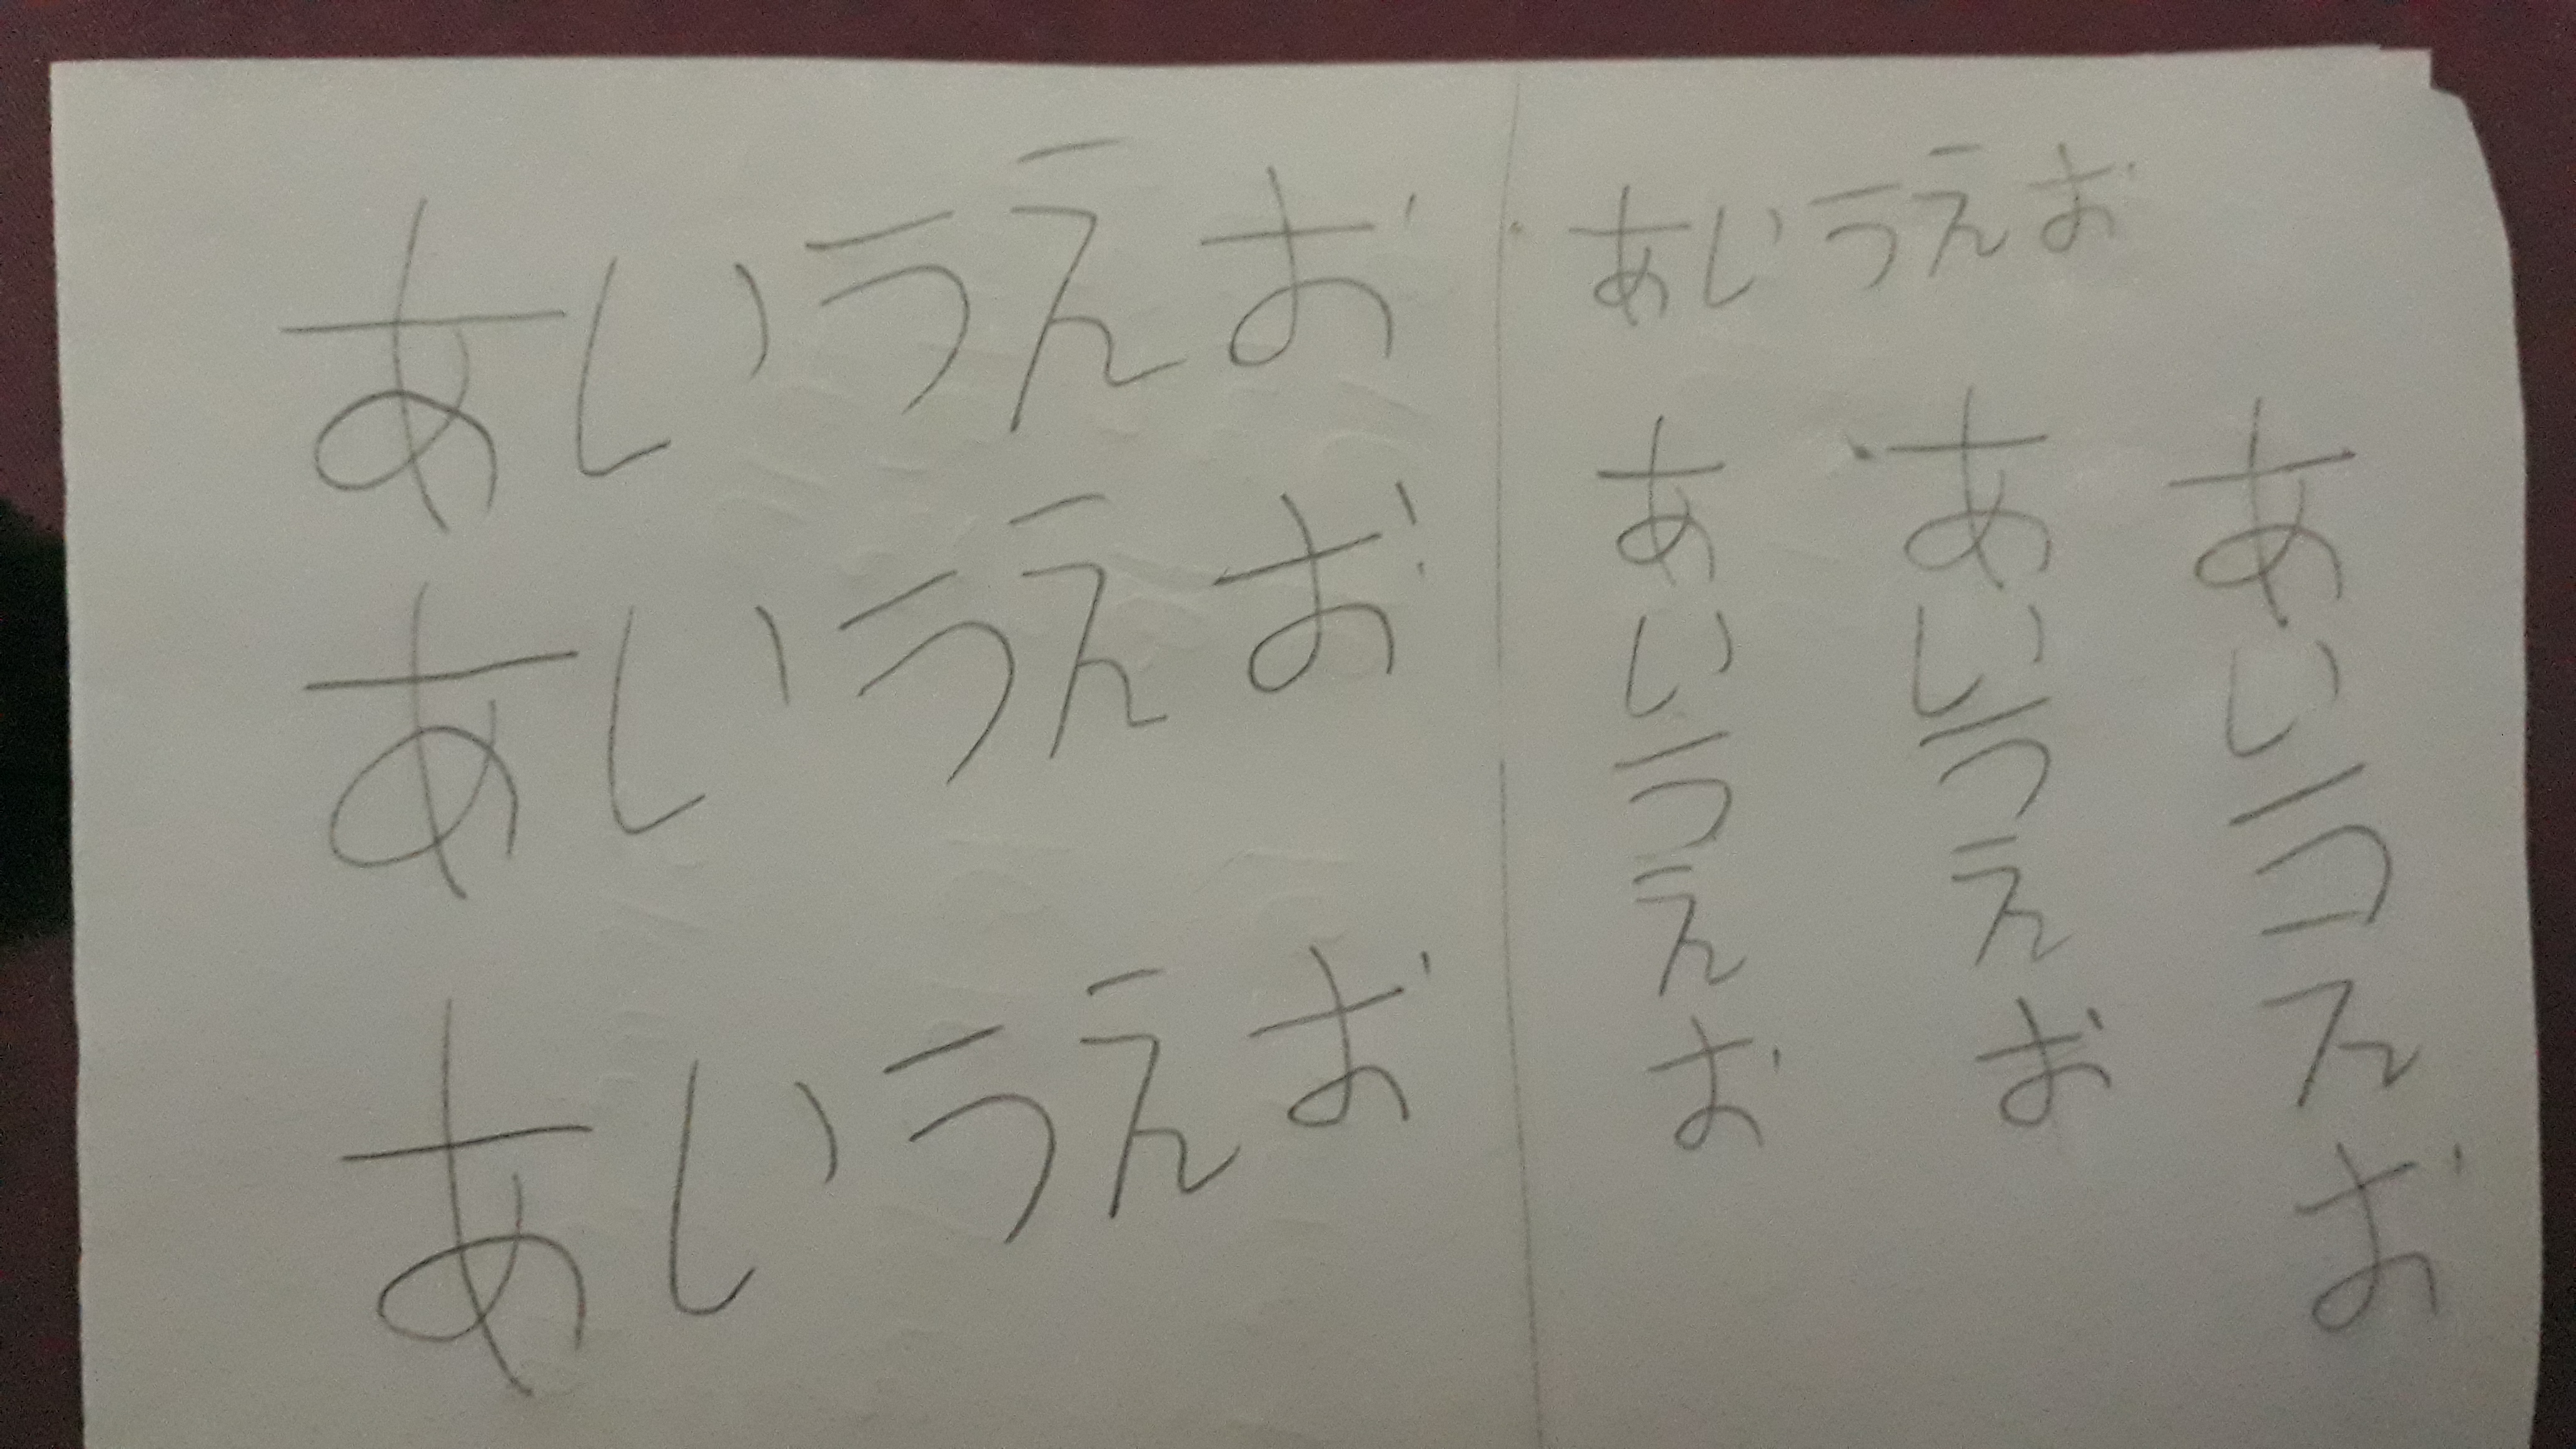 あいうえお
あいうえお
あいうえお
あいうえお
あいうえお
あいうえお
あいうえお